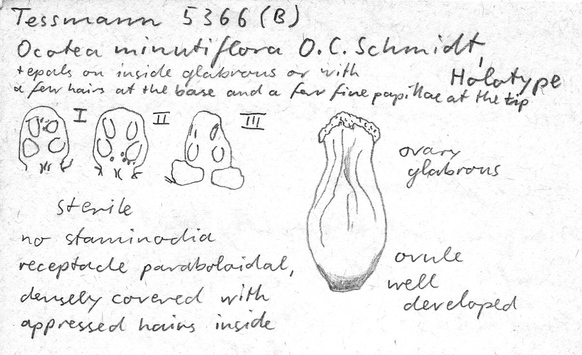 Tessmann 5366 (B)
Ocotea minutiflora O.C. Schmidt,
Holotype
tepals on inside glabrous or with
a few hairs at the base and a few fine papillae at the tip
I II III
ovary
glabrous
sterile
no staminodia
receptacle paraboloidal,
densely covered with
appressed hairs inside
ovule
well
developed